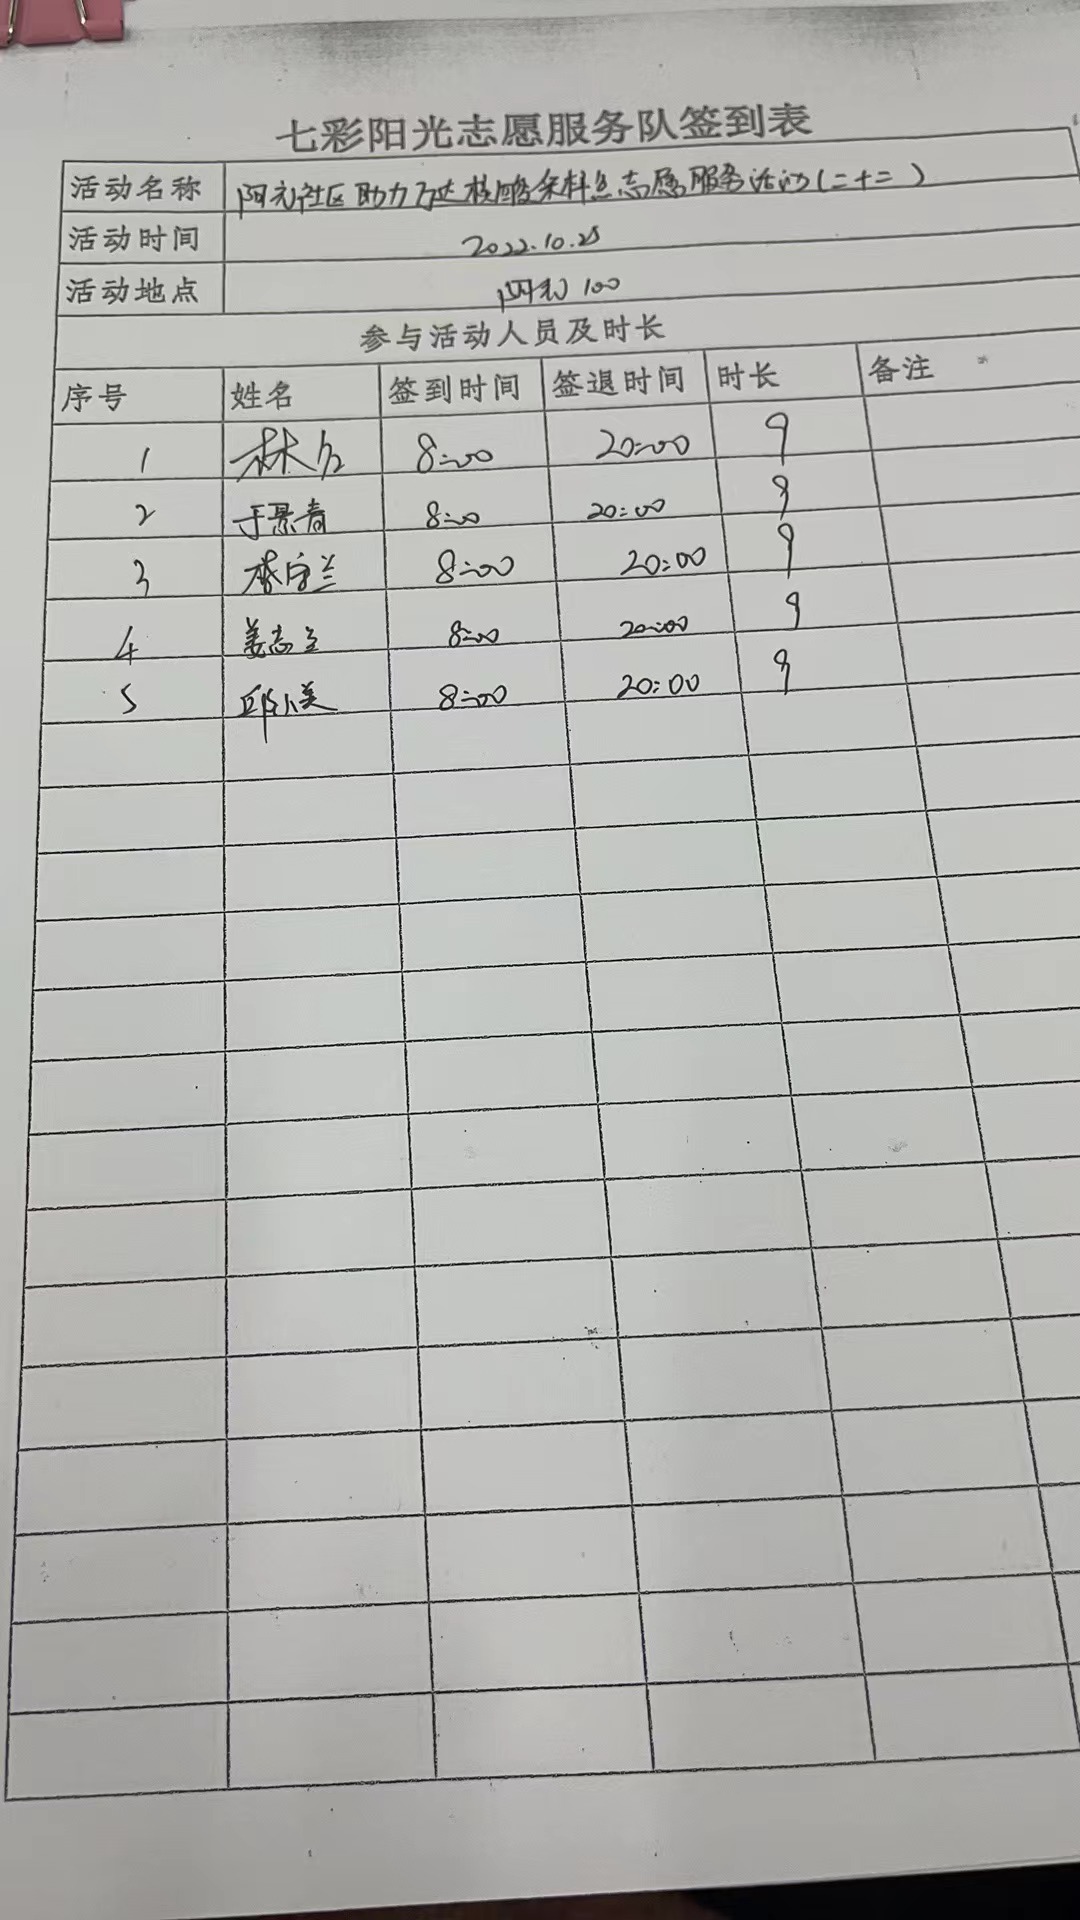 七彩阳光志愿服务队签到表
活动名称 社区助力万达核酸采样点志愿服务活动(二十二)
活动时间 2022.10.25
活动地点 100
参与活动人员及时长
序号 姓名 签到时间 签退时间 时长 备注
1 林 8:00 20:00 9
2 于景青 8:00 20:00 9
3 兰 8:00 20:00 9
4 姜志 8:00 20:00 9
5 邱小美 8:00 20:00 9